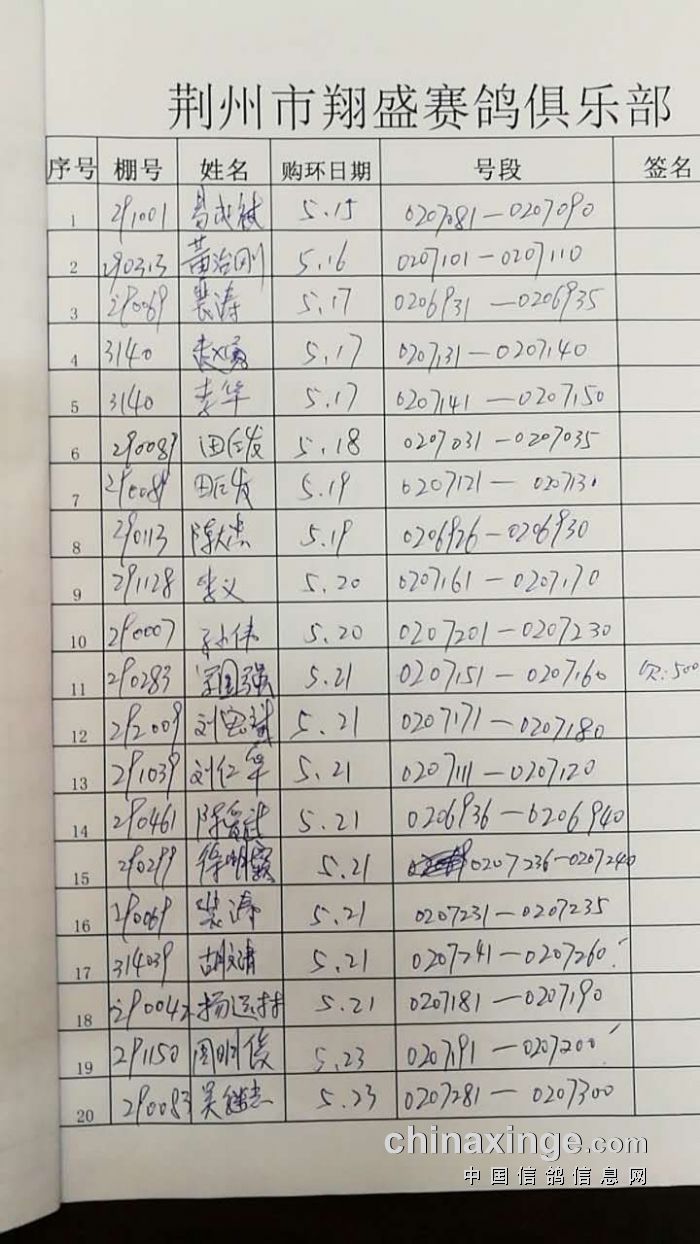 荆州市翔盛赛鸽俱乐部
序号 棚号 姓名 购环日期 号段 签名
1 291001 5.15 0207081—0207090
2 290313 黄治刚 5.16 0207101—0207110
3 290069 裴涛 5.17 0206931—0206935
4 3140 5.17 0207131—0207140
5 3140 李华 5.17 0207141—0207150
6 290089 5.18 0207031—0207035
7 290089 5.19 0207121—0207130
8 290113 陈大志 5.19 0206926—0206930
9 291128 李义 5.20 0207161—0207170
10 290007 孙伟 5.20 0207201—0207230
11 290283 宋国强 5.21 0207151—0207160 欠:500
12 292009 刘宏斌 5.21 0207171—0207180
13 291039 刘仁华 5.21 0207111—0207120
14 290461 5.21 0206936—0206940
15 290299 5.21 0207236—0207240
16 290069 裴涛 5.21 0207231—0207235
17 314039 胡文清 5.21 0207241—0207260
18 290042 杨运村 5.21 0207181—0207190
19 291150 周明俊 5.23 0207191—0207200
20 290083 吴继志 5.23 0207281—0207300
chinaxinge.com
中国信鸽信息网